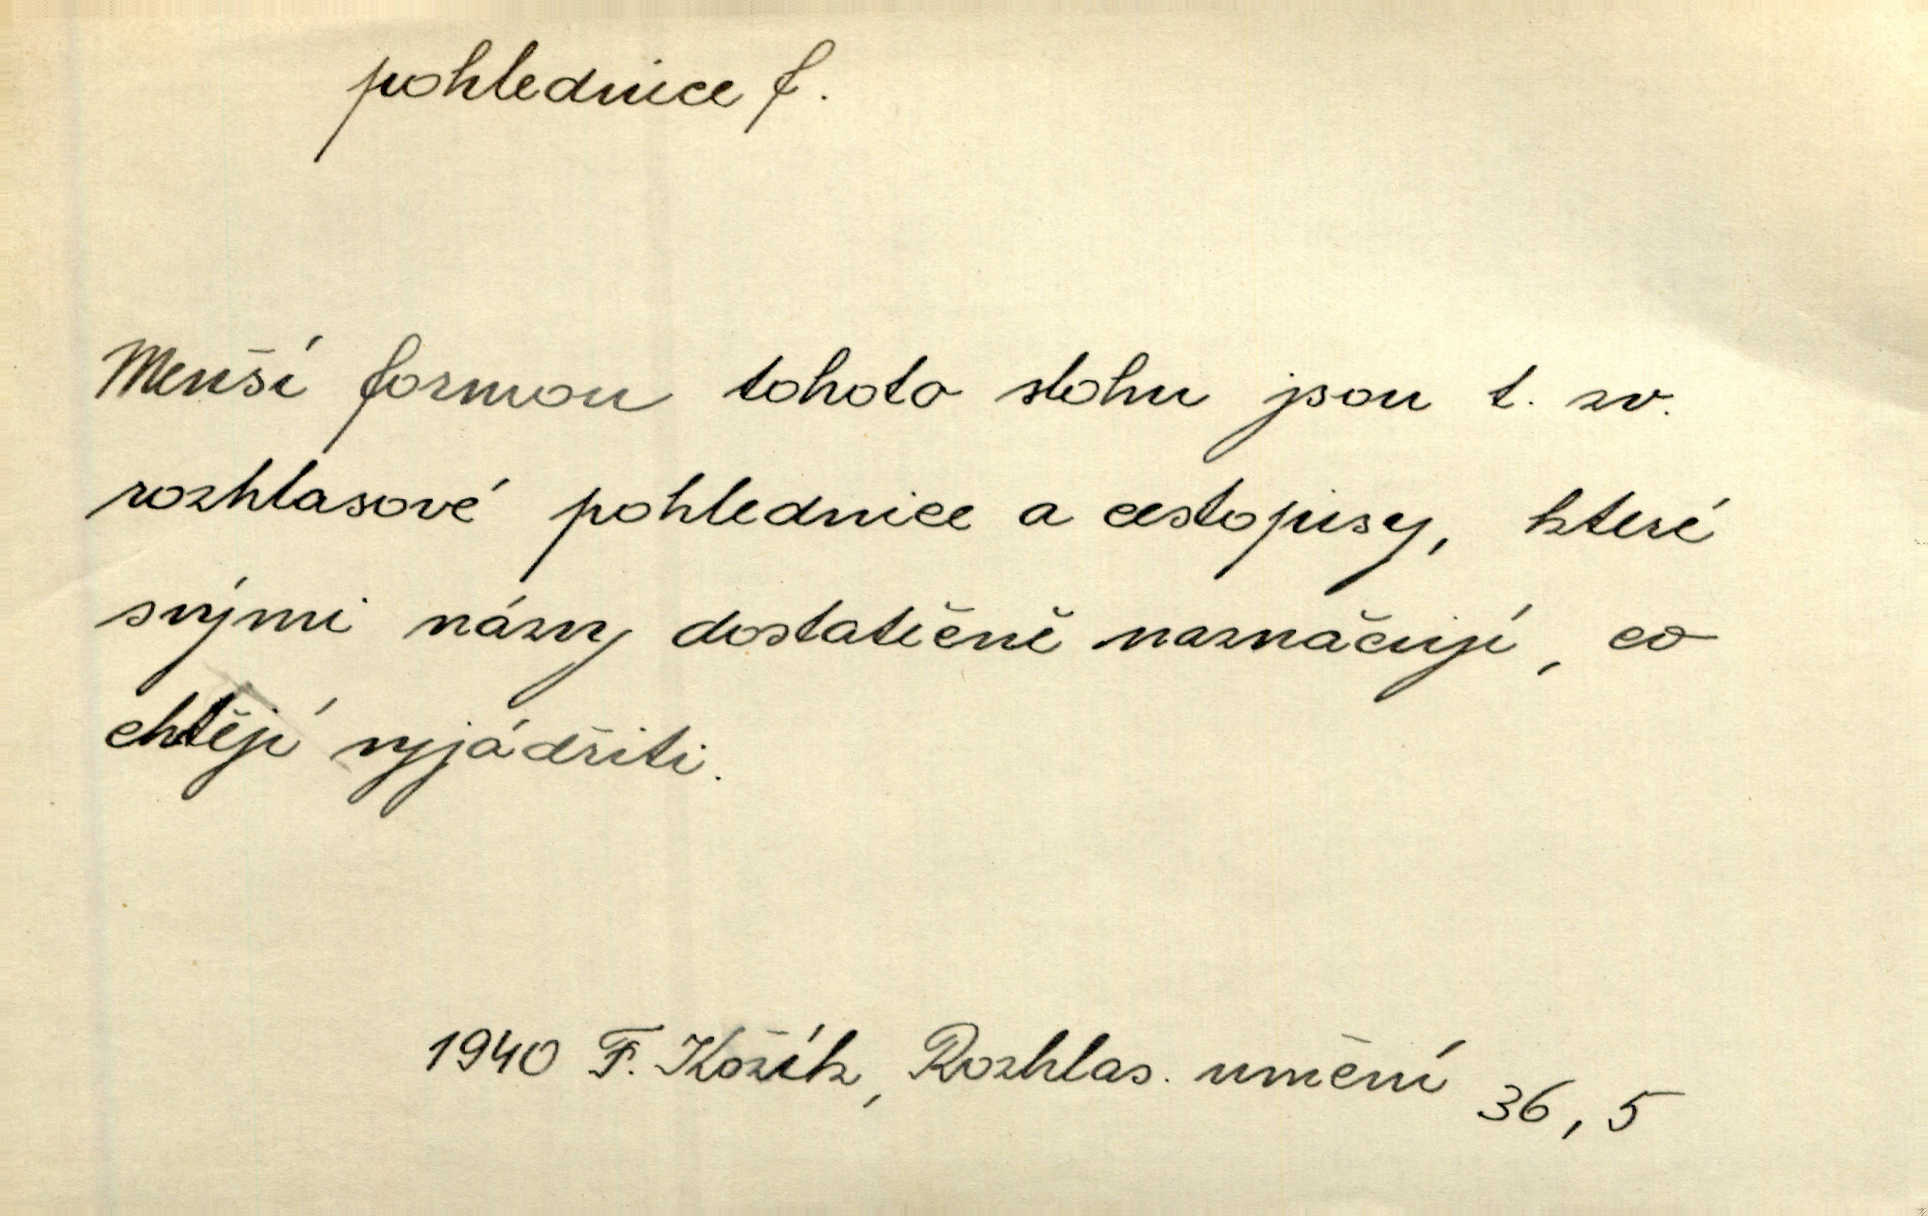 pohlednice f.
Menší formou tohoto slohu jsou t. zv.
rozhlasové pohlednice a cestopisy, které
svými názvy dostatečně naznačují, co
chtějí vyjádřiti.
1940 F. Kožík, Rozhlas. umění 36, 5